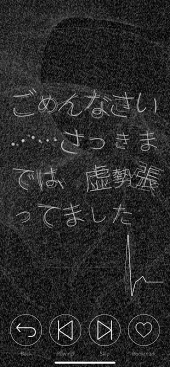 ごめんなさい
……さっきま
では 虚勢張
ってました